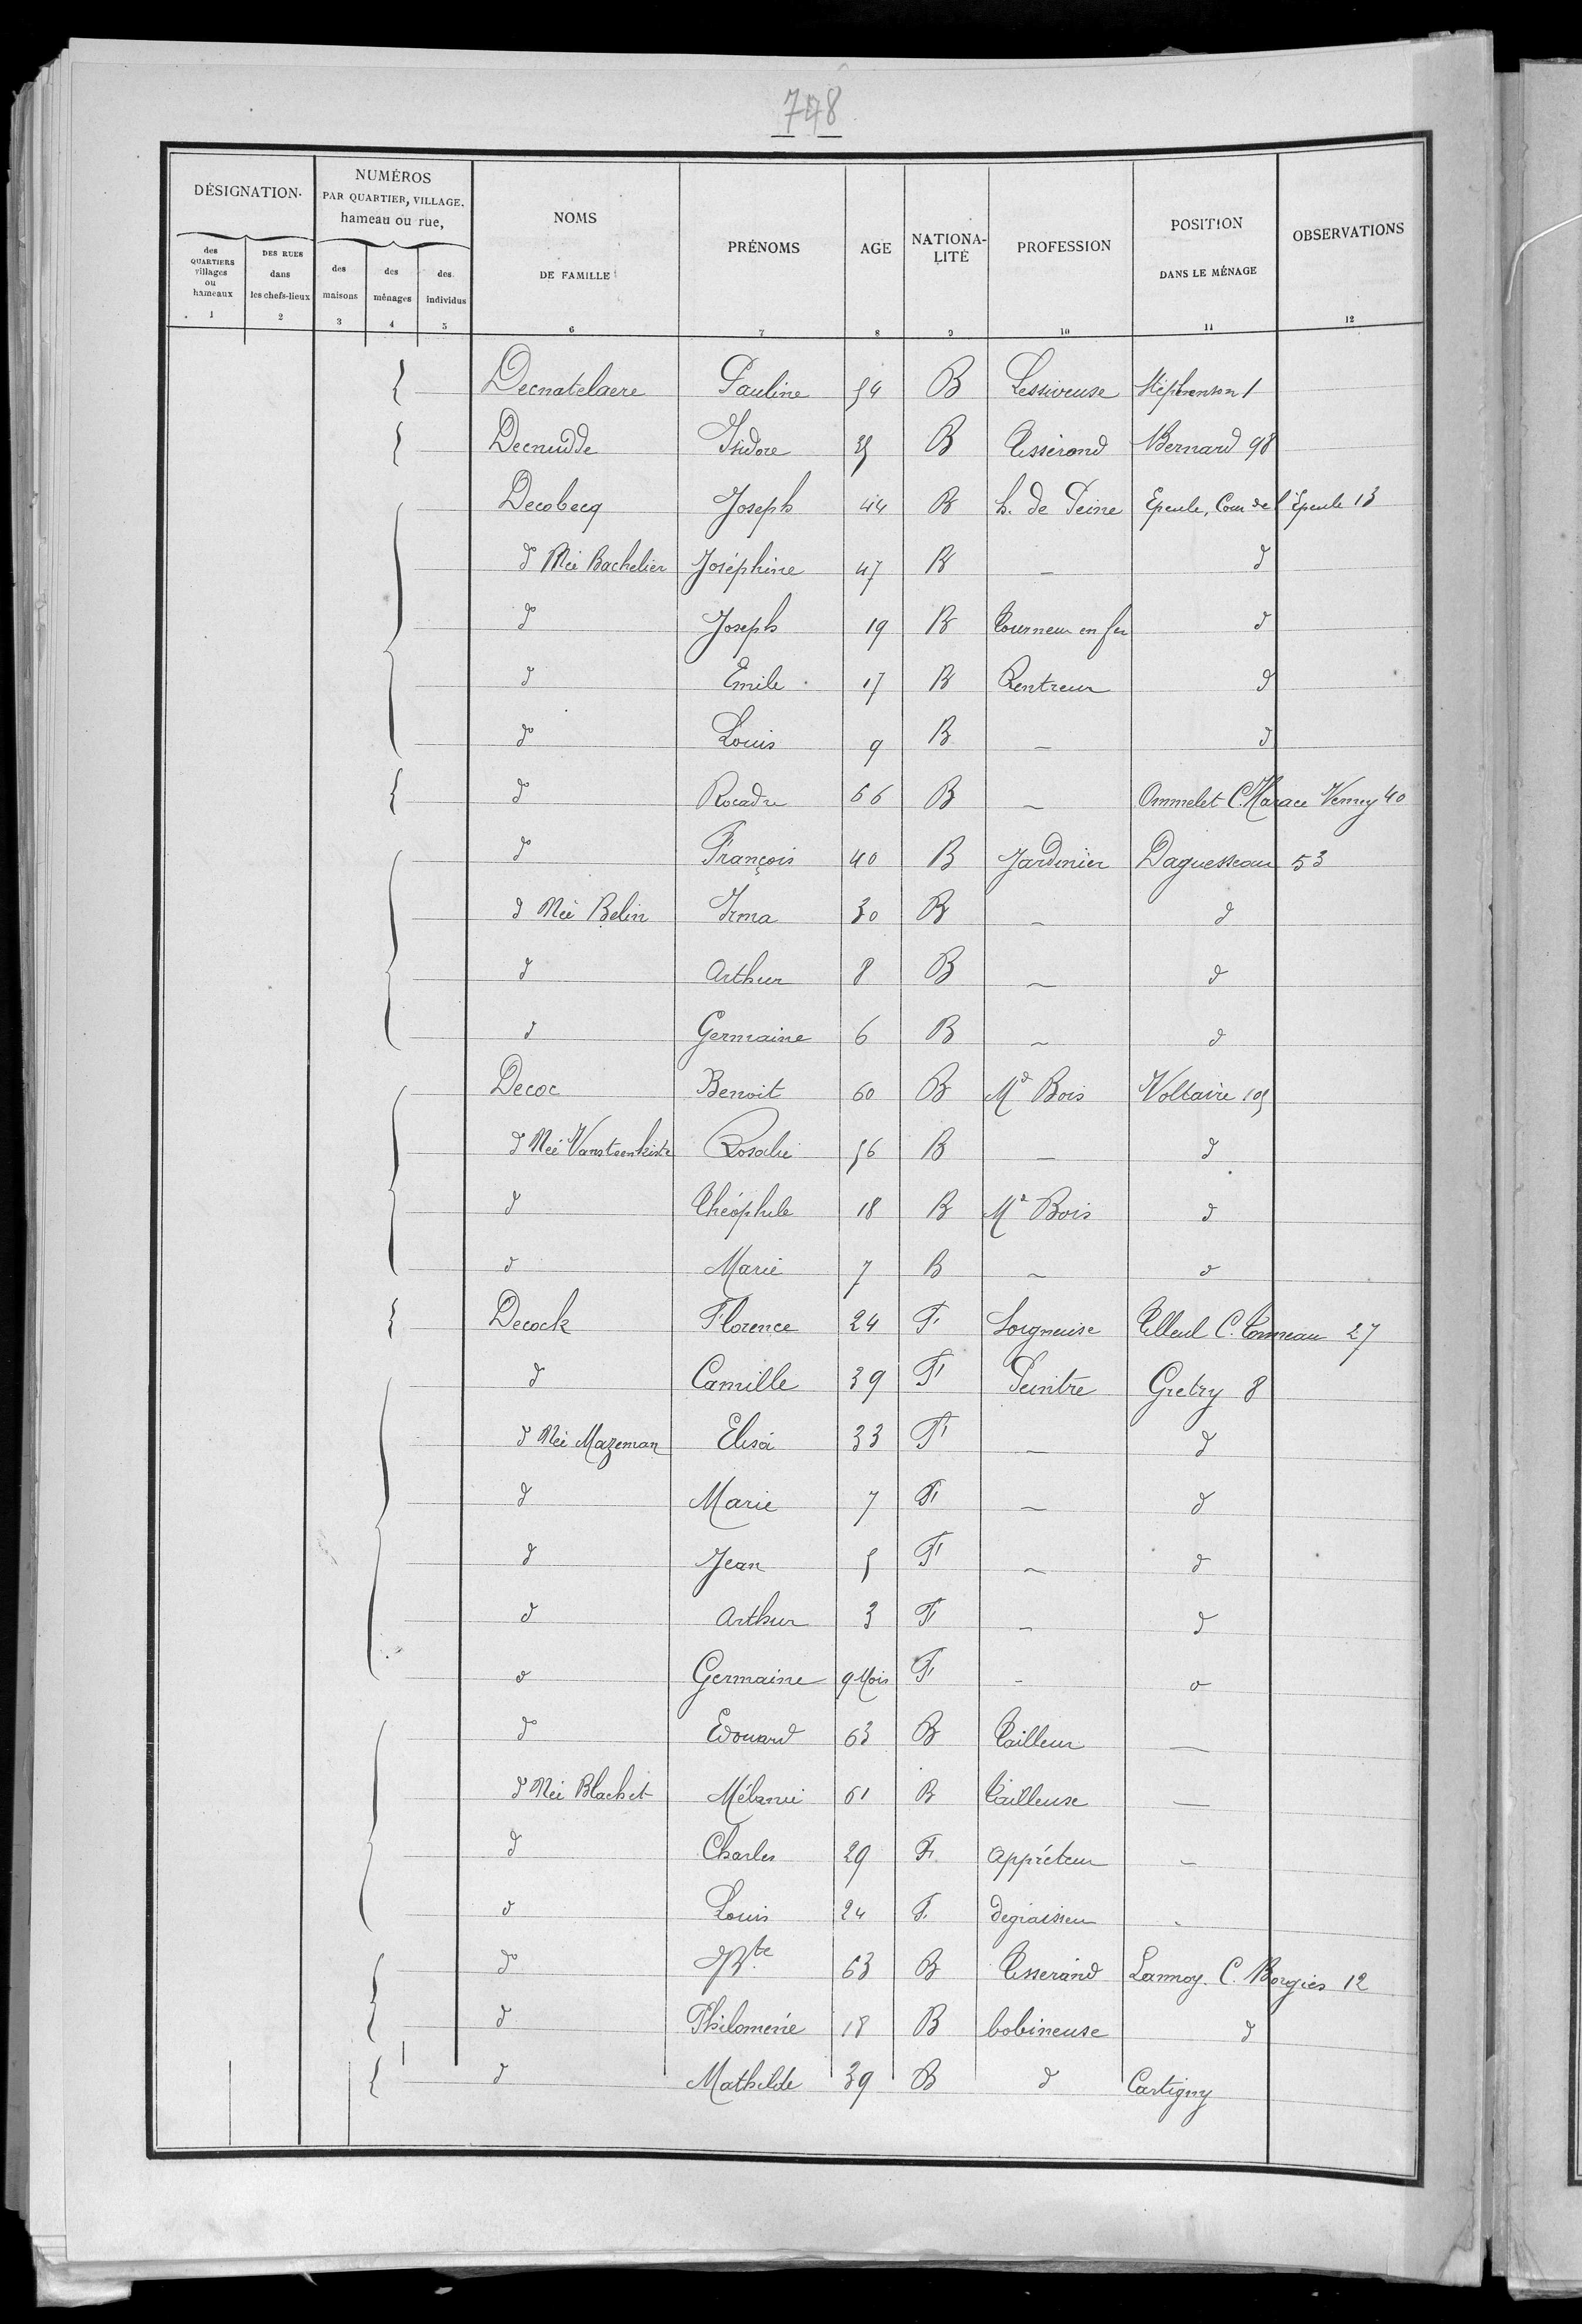 748
DÉSIGNATION.
NUMÉROS
PAR QUARTIER, VILLAGE.
hameau ou rue,
NOMS
DE FAMILLE
PRÉNOMS
AGE
NATIONA-
LITÉ
PROFESSION
POSITION
DANS LE MÉNAGE
OBSERVATIONS
des
QUARTIERS
villages
ou
hameaux
DES RUES
dans
les chefs-lieux
des
maisons
des
ménages
des
individus
1 2 3 4 5 6 7 8 9 10 11 12
Decnatelaere Pauline 54 B Lessiveuse Stéphenson 1
Decnudde Isidore B Tisserand Bernard 98
Decobecq Joseph 44 B h. de Peine Epeule, Cour de l'Epeule 13
d Née Bachelier Joséphine 47 B — d
do Joseph 19 B Tourneur en fer d
d Emile 17 B Rentreur d
do Louis 9 B — d
do 66 B — Ommelet C. Verney 40
do François 40 B Jardinier Daguesseau 53
d Née Belin Irma 30 B — d
d Arthur 8 B — d
d Germaine 6 B — d
Decoc Benoit 60 B Md Bois Voltaire 105
d Née Vansteenkiste Rosalie 56 B — d
d Théophile 18 B Md Bois d
d Marie 7 B — d
Decock Florence 24 F Soigneuse Tilleul C. Tonneau 27
d Camille 39 F Peintre Gretry 8
d Née Mazeman Elisa 33 F — d
d Marie 7 F — d
d Jean 5 F — d
d Arthur 3 F — d
d Germaine 9 Mois F - d
do Edouard 63 B Tailleur —
d Née Blachet Mélanie 61 B Tailleuse —
d Charles 29 F. Appréteur -
d Louis 24 F. degraisseur -
do JBte 63 B Tisserand Lannoy. C. 12
d Philomène 18 B bobineuse d
d Mathilde 39 B d Cartigny